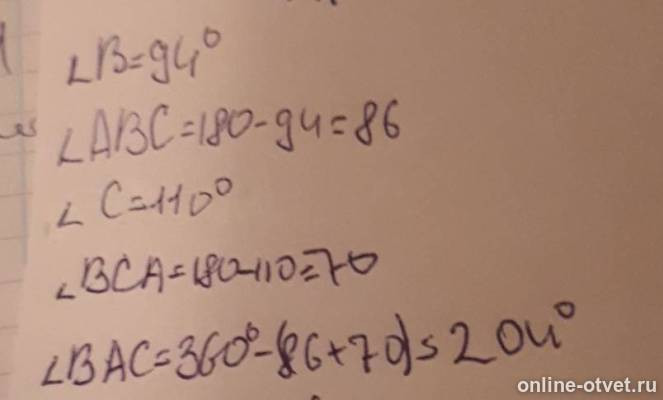 ∠B=94°
∠ABC=180-94=86
∠C=110°
∠BCA=180-110=70
∠BAC=360°-(86+70)=204°
online-otvet.ru